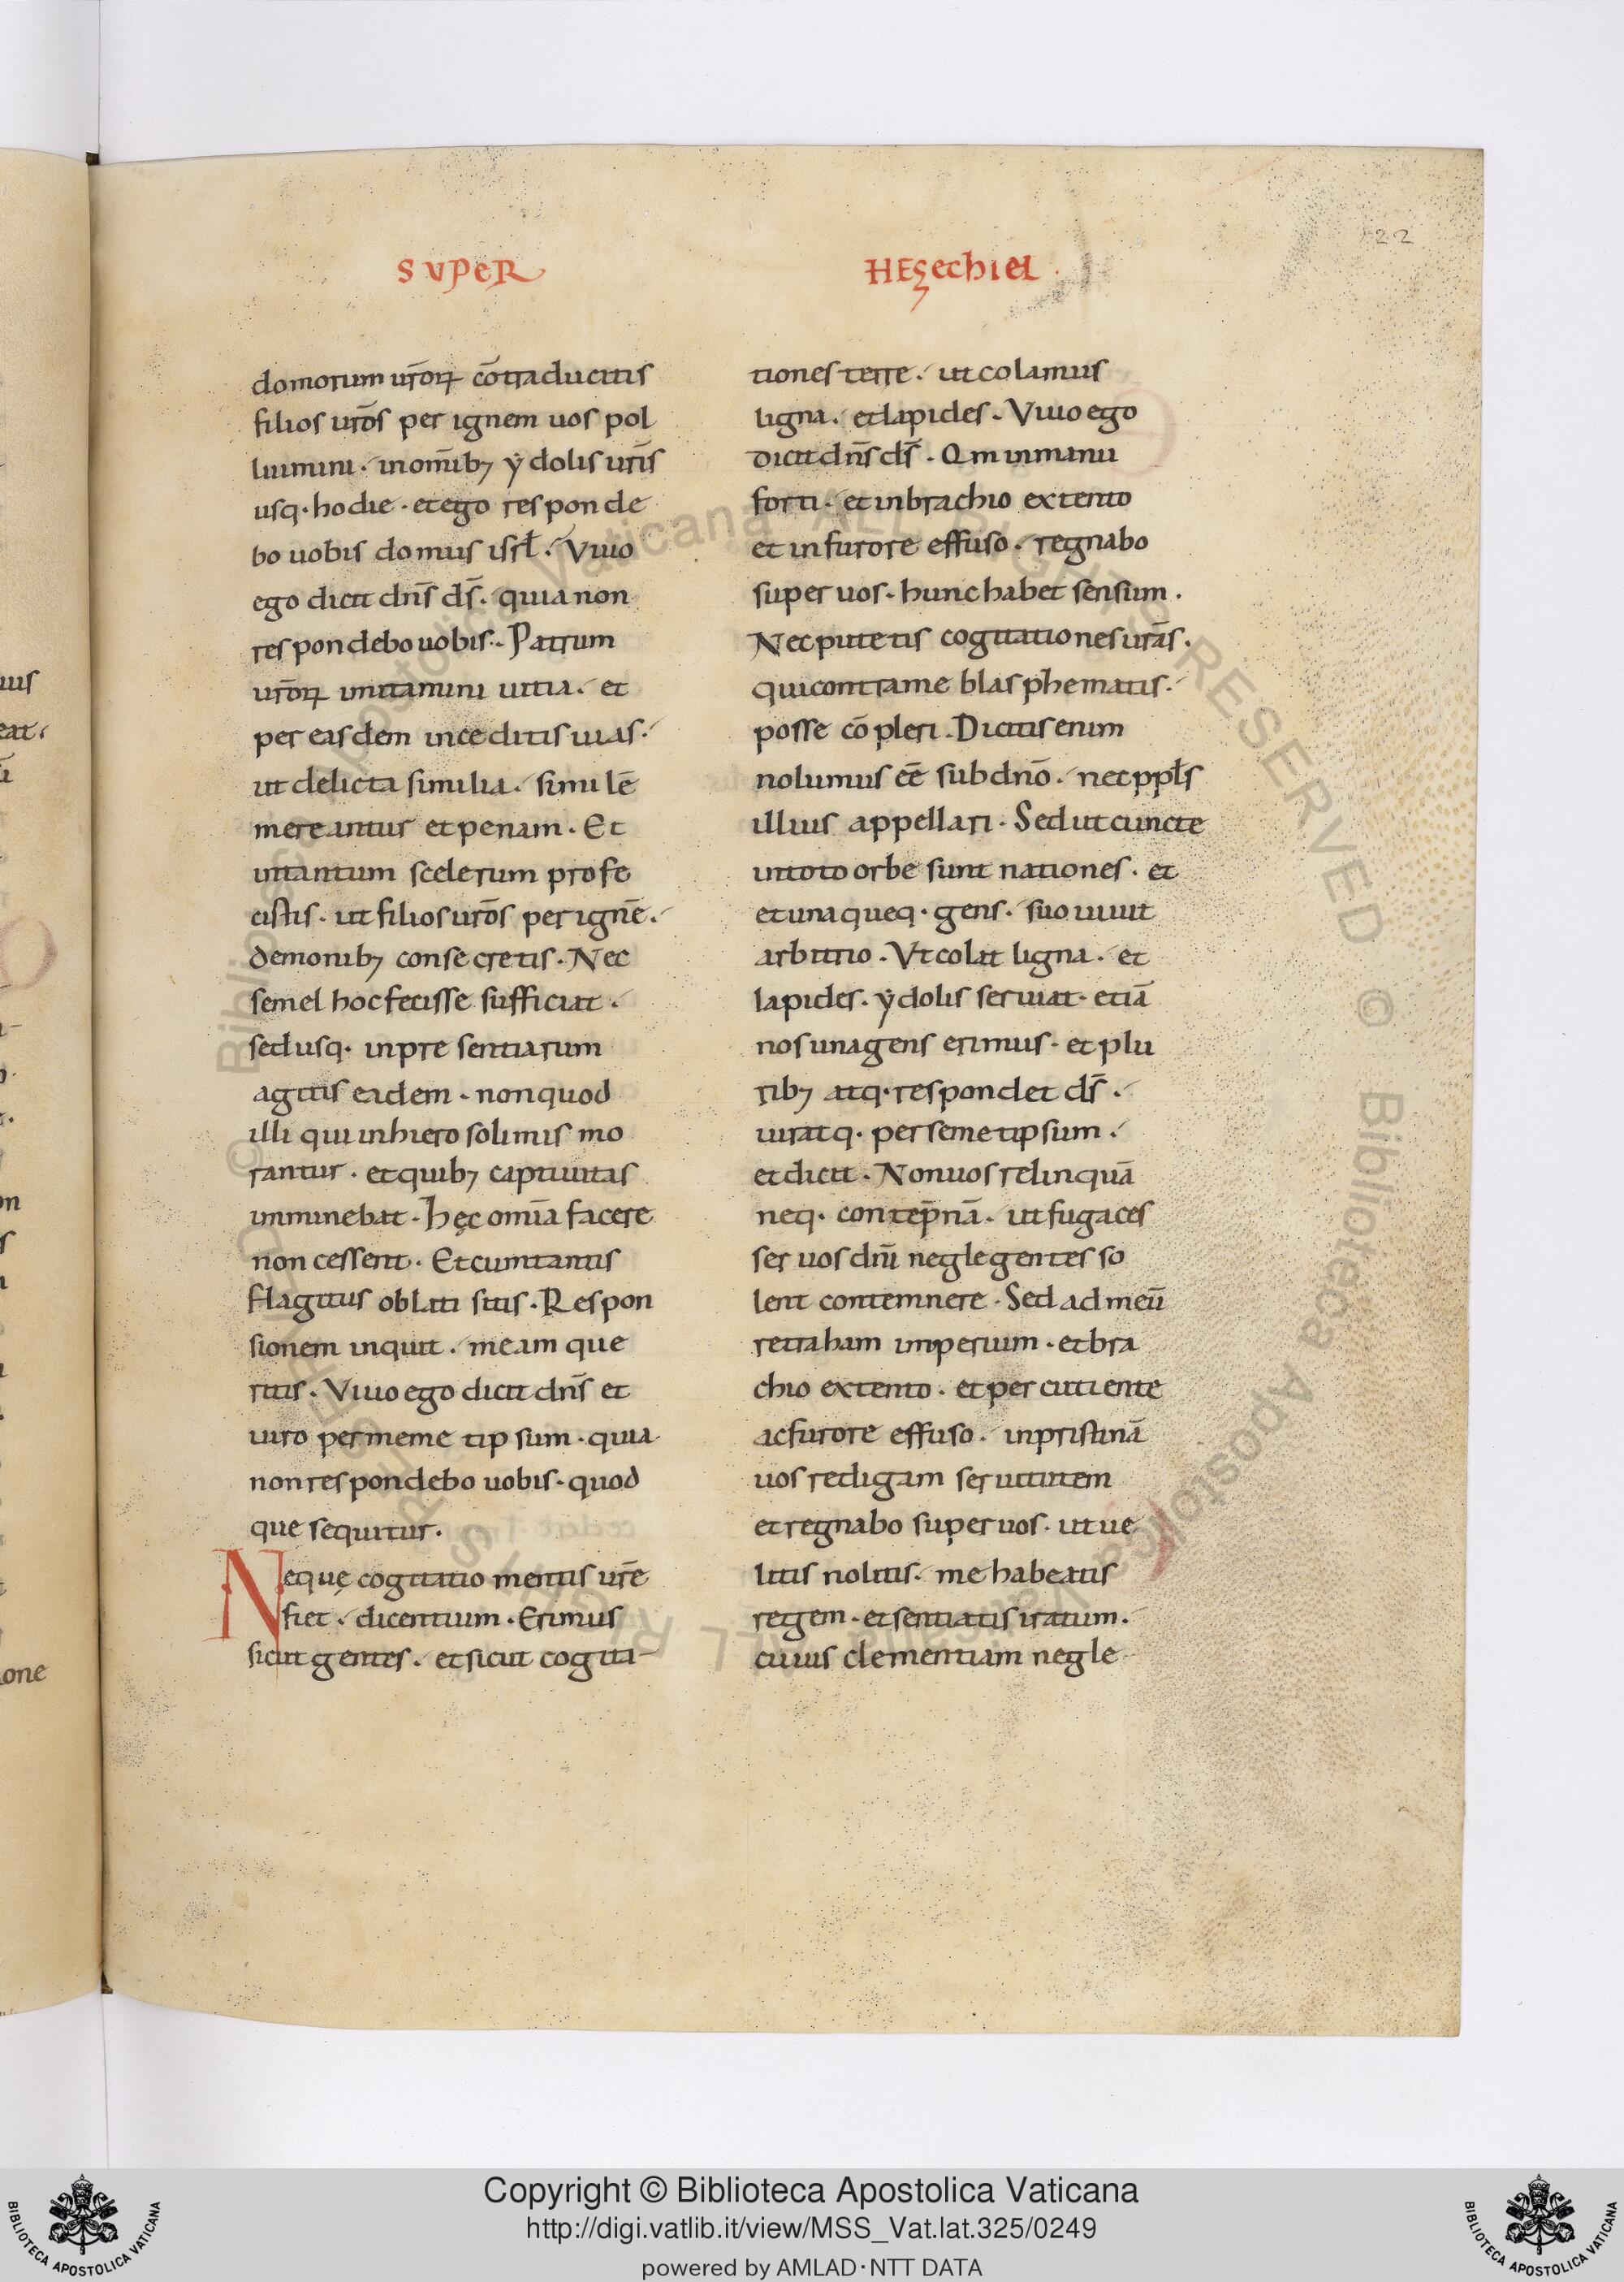 22
SUPER
HEZechiel .
domorum ur̄oꝝ cōtraducitis
filios ur̄os per ignem uos pol
luimini . inom̄ibꝫ ẏdolis ur̄is
usq· hodie · et ego responde
bo uobis domus isrł . Viuo
ego dicit dn̄s ds̄ . quia non
respondebo uobis . Patrum
ur̄oꝝ imitamini uitia . et
per easdem inceditis uias .
ut delicta similia . similē
mereantur et penam . Et
intantum scelerum profe
cistis . ut filios ur̄os per ignē .
demonibꝫ consecretis . Nec
semel hoc fecisse sufficiat .
sed usq· inpresentiarum
agitis eadem . non quod
illi qui inhierosolimis mo
rantur . et quibꝫ captiuitas
imminebat . Hęc om̄ia facere
non cessent . Et cum tantis
flagitiis oblati sitis . Respon
sionem inquit . meam que
ritis . Viuo ego dicit dn̄s et
iuro per memetipsum . quia
non respondebo uobis . quod
que sequitur .
Neque cogitatio mentis ur̄e
fiet . dicentium . Erimus
sicut gentes . et sicut cogita-
tiones terre . ut colamus
ligna . et lapides . Viuo ego
dicit dn̄s ds̄ . Qm inmanu
forti . et inbrachio extento
et infurore effuso . regnabo
super uos . hunc habet sensum .
Nec putetis cogitationes ur̄as .
qui contra me blasphematis .
posse cōpleri . Dicitis enim
nolumus eē sub dn̄o . nec ppłs
illius appellari . Sed ut cuncte
intoto orbe sunt nationes . et
et una queq· gens . suo uiuit
arbitrio . Vt colat ligna . et
lapides . ẏdolis seruiat . etiā
nos una gens erimus . et plu
ribꝫ atq· respondet ds̄ .
iuratq· per semetipsum .
et dicit . Non uos relinquā
neq· contēpnā . ut fugaces
seruos dn̄i neglegentes so
lent contemnere . Sed ad meū
retraham imperium . et bra
chio extento . et percutiente
ac furore effuso . inpristinā
uos redigam seruitutem
et regnabo super uos . ut ue
litis nolitis . me habeatis
regem . et sentiatis iratum .
cuius clementiam negle-
Copyright © Biblioteca Apostolica Vaticana
http://digi.vatlib.it/view/MSS_Vat.lat.325/0249
powered by AMLAD·NTT DATA